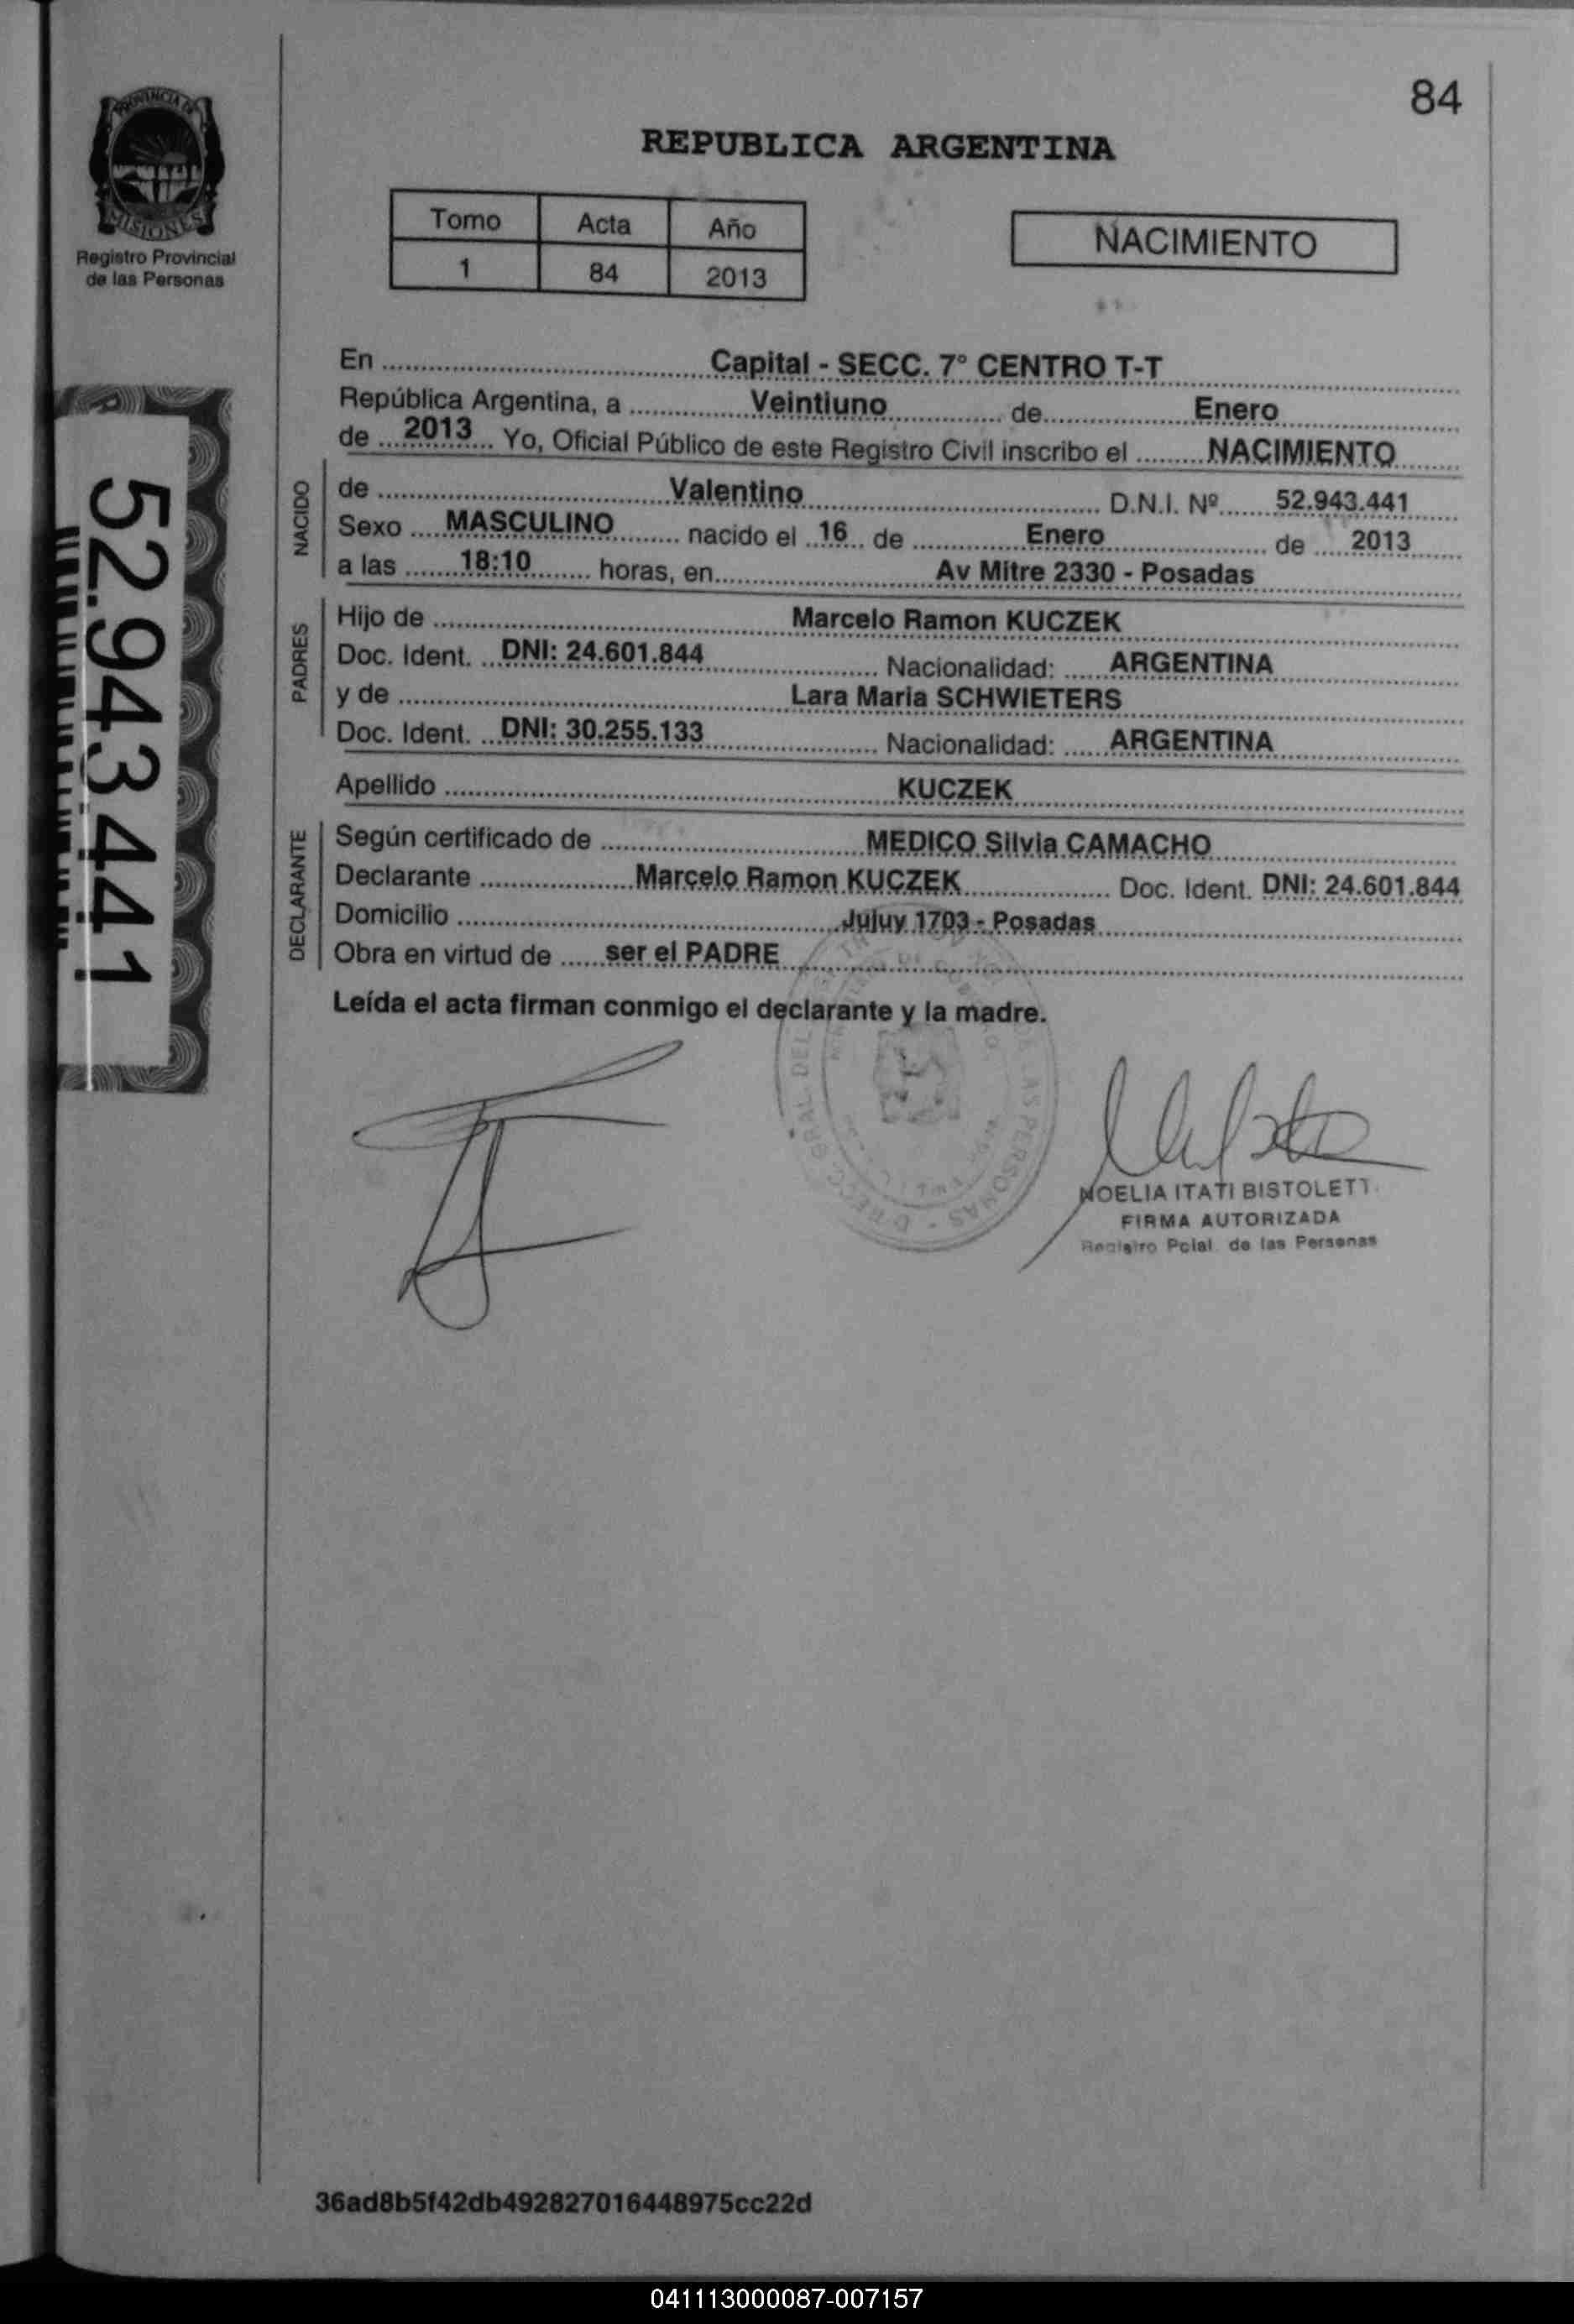 84
PROVINCIA DE
MISIONES
Registro Provincial
de las Personas
REPUBLICA ARGENTINA
Tomo Acta Año
1 84 2013
NACIMIENTO
En ........ Capital - SECC. 7° CENTRO T-T ........
República Argentina, a ........ Veintiuno ........ de ........ Enero ........
de ... 2013 ... Yo, Oficial Público de este Registro Civil inscribo el ........ NACIMIENTO ........
NACIDO
de ........ Valentino ........ D.N.I. Nº ...... 52.943.441 ......
Sexo .... MASCULINO ........ nacido el .. 16 .. de ........ Enero ........ de ..... 2013 ......
a las ....... 18:10 ........ horas, en ........ Av Mitre 2330 - Posadas ........
PADRES
Hijo de ........ Marcelo Ramon KUCZEK ........
Doc. Ident. ... DNI: 24.601.844 ........ Nacionalidad: ...... ARGENTINA ........
y de ........ Lara Maria SCHWIETERS ........
Doc. Ident. ... DNI: 30.255.133 ........ Nacionalidad: ...... ARGENTINA ........
Apellido ........ KUCZEK ........
DECLARANTE
Según certificado de ........ MEDICO Silvia CAMACHO ........
Declarante ........ Marcelo Ramon KUCZEK ........ Doc. Ident. DNI: 24.601.844
Domicilio ........ Jujuy 1703 - Posadas ........
Obra en virtud de ...... ser el PADRE ........
Leída el acta firman conmigo el declarante y la madre.
52.943.441
NOELIA ITATI BISTOLETT
FIRMA AUTORIZADA
Registro Pcial. de las Personas
36ad8b5f42db492827016448975cc22d
041113000087-007157